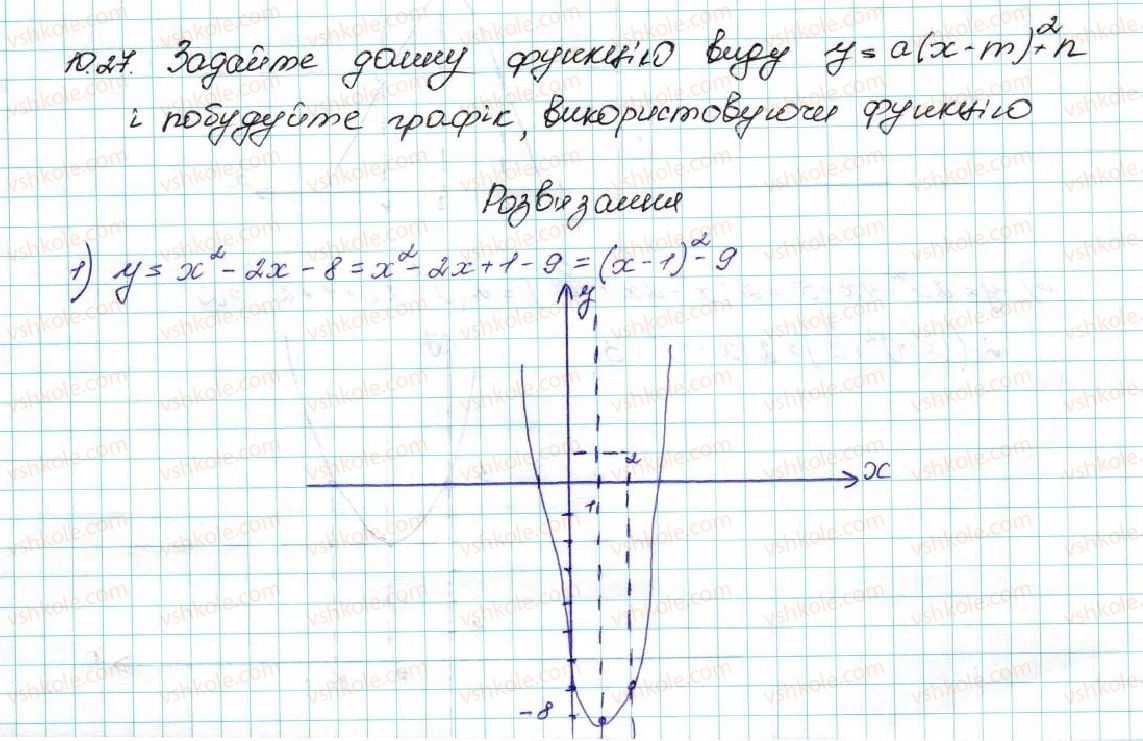 10.27. Задайте дану функцію виду y = a(x-m)²+n
і побудуйте графік, використовуючи функцію
Розв'язання
1) y = x² - 2x - 8 = x² - 2x + 1 - 9 = (x-1)² - 9
y
2
x
1
-8